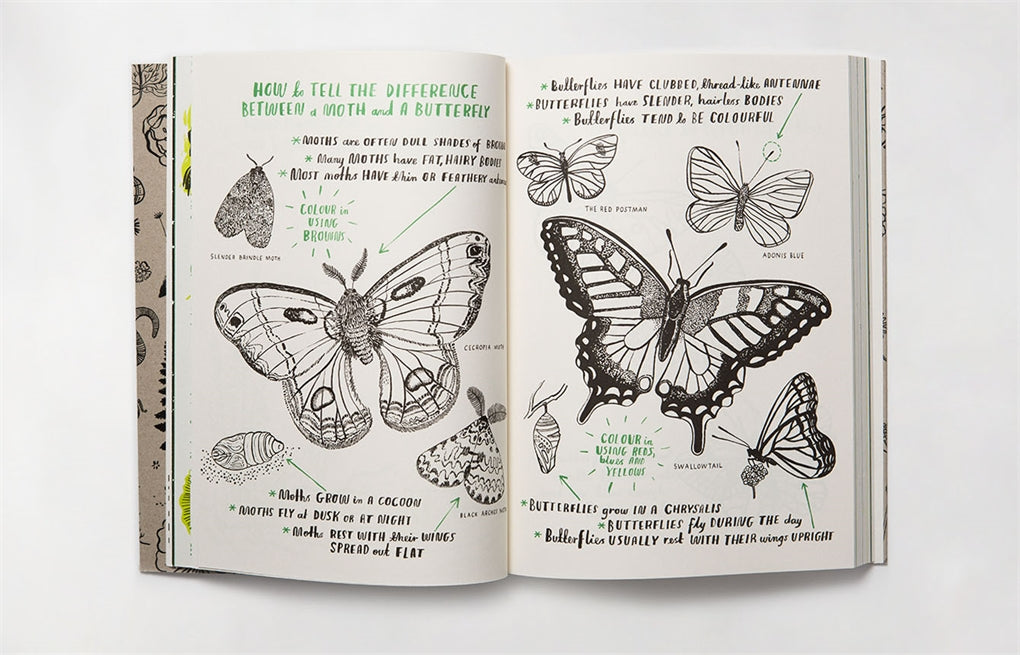 HOW to TELL THE DIFFERENCE
BETWEEN a MOTH and A BUTTERFLY
* MOTHS are OFTEN DULL SHADES of
* Many MOTHS have FAT, HAIRY BODIES
* MOST moths HAVE thin OR FEATHERY
COLOUR in
USING
BROWNS
SLENDER BRINDLE MOTH
CECROPIA MOTH
BLACK ARCHES
* Moths GROW in A COCOON
* MOTHS FLY at DUSK OR AT NIGHT
* Moths REST WITH their WINGS
SPREAD out FLAT
* Butterflies HAVE CLUBBED, thread-like ANTENNAE
* BUTTERFLIES have SLENDER, hairless BODIES
* Butterflies TEND to BE COLOURFUL
THE RED POSTMAN
ADONIS BLUE
COLOUR in
USING REDS,
blues AND
YELLOWS
SWALLOWTAIL
* BUTTERFLIES grow IN A CHRYSALIS
* BUTTERFLIES fly DURING THE day
* Butterflies USUALLY rest WITH THEIR wings UPRIGHT